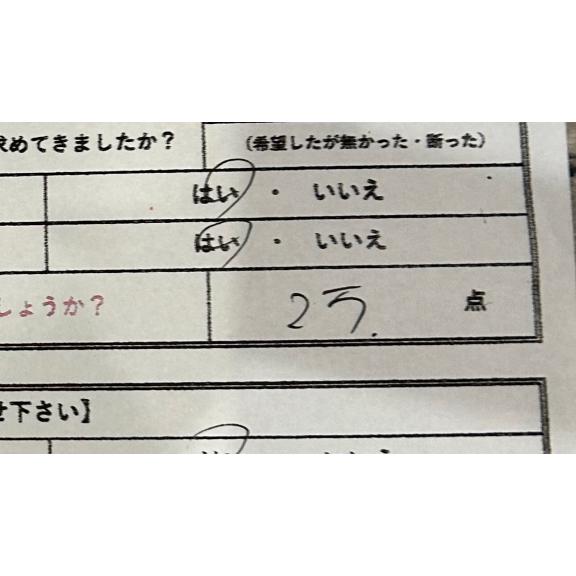 求めてきましたか？
（希望したが無かった・断った）
はい ・ いいえ
はい ・ いいえ
しょうか？
2万. 点
せ下さい】